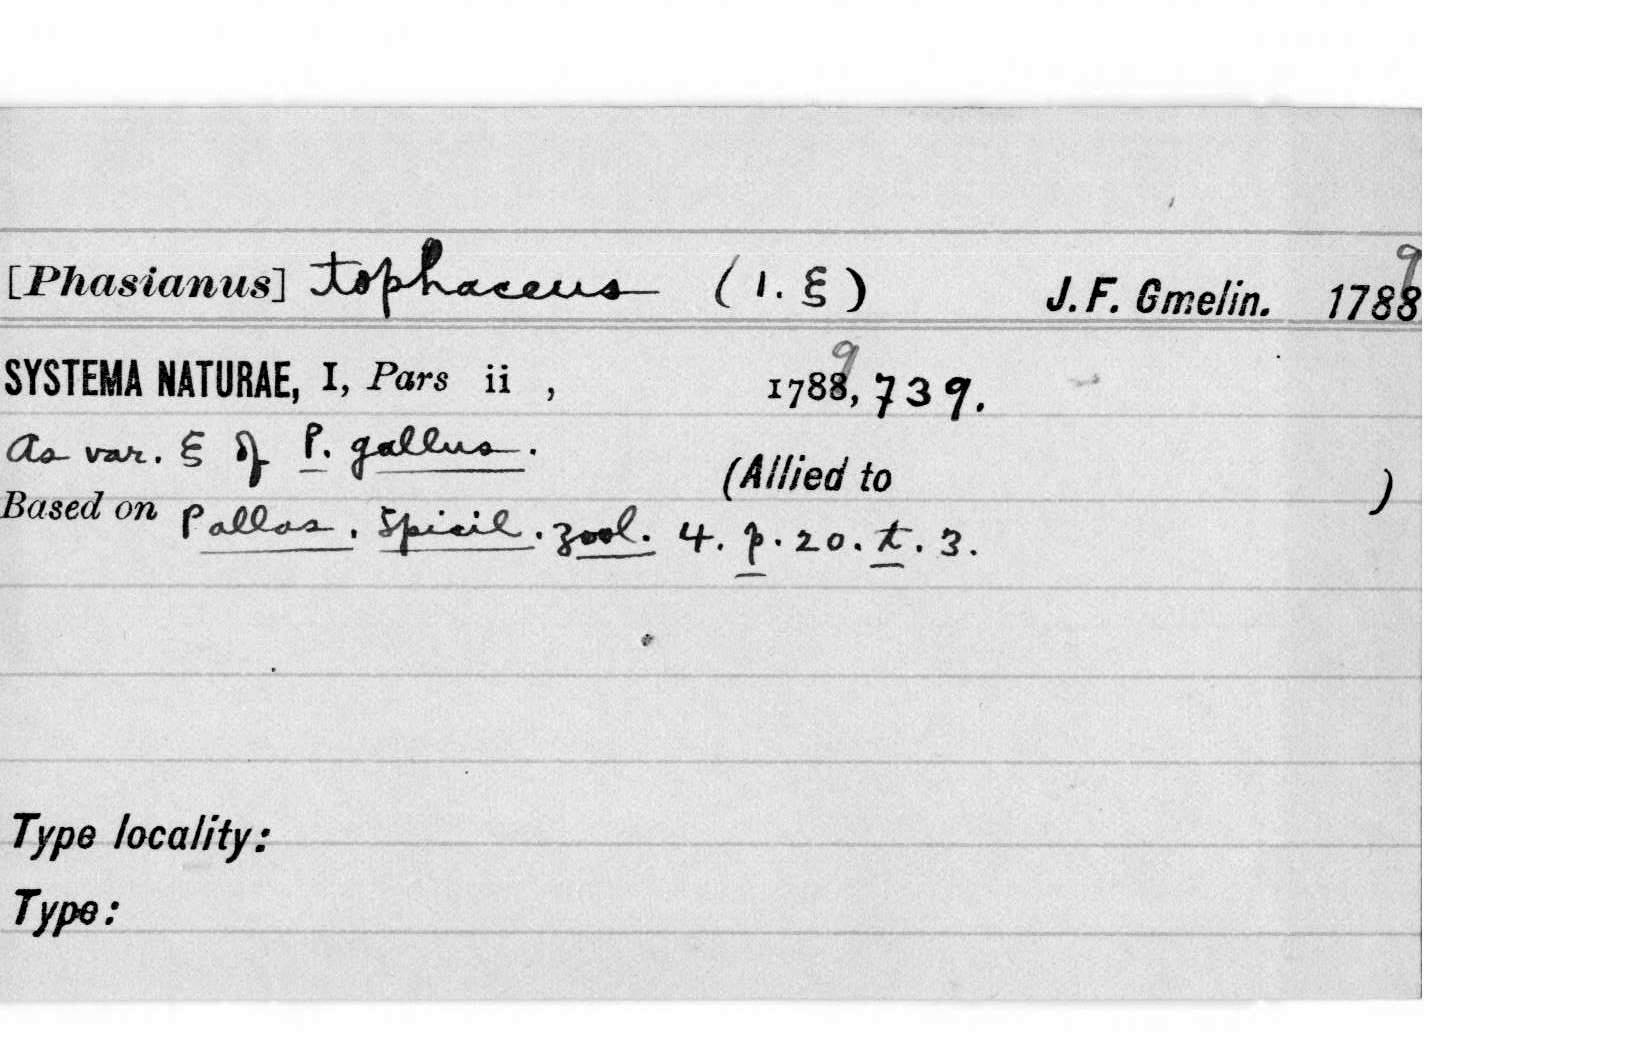 [Phasianus] tophaceus (1. ξ) J. F. Gmelin. 1788 9
SYSTEMA NATURAE, I, Pars ii , 1788 9, 739.
As var. ξ of P. gallus.
(Allied to )
Based on Pallas. Spicil. zool. 4. p. 20. t. 3.
Type locality:
Type: